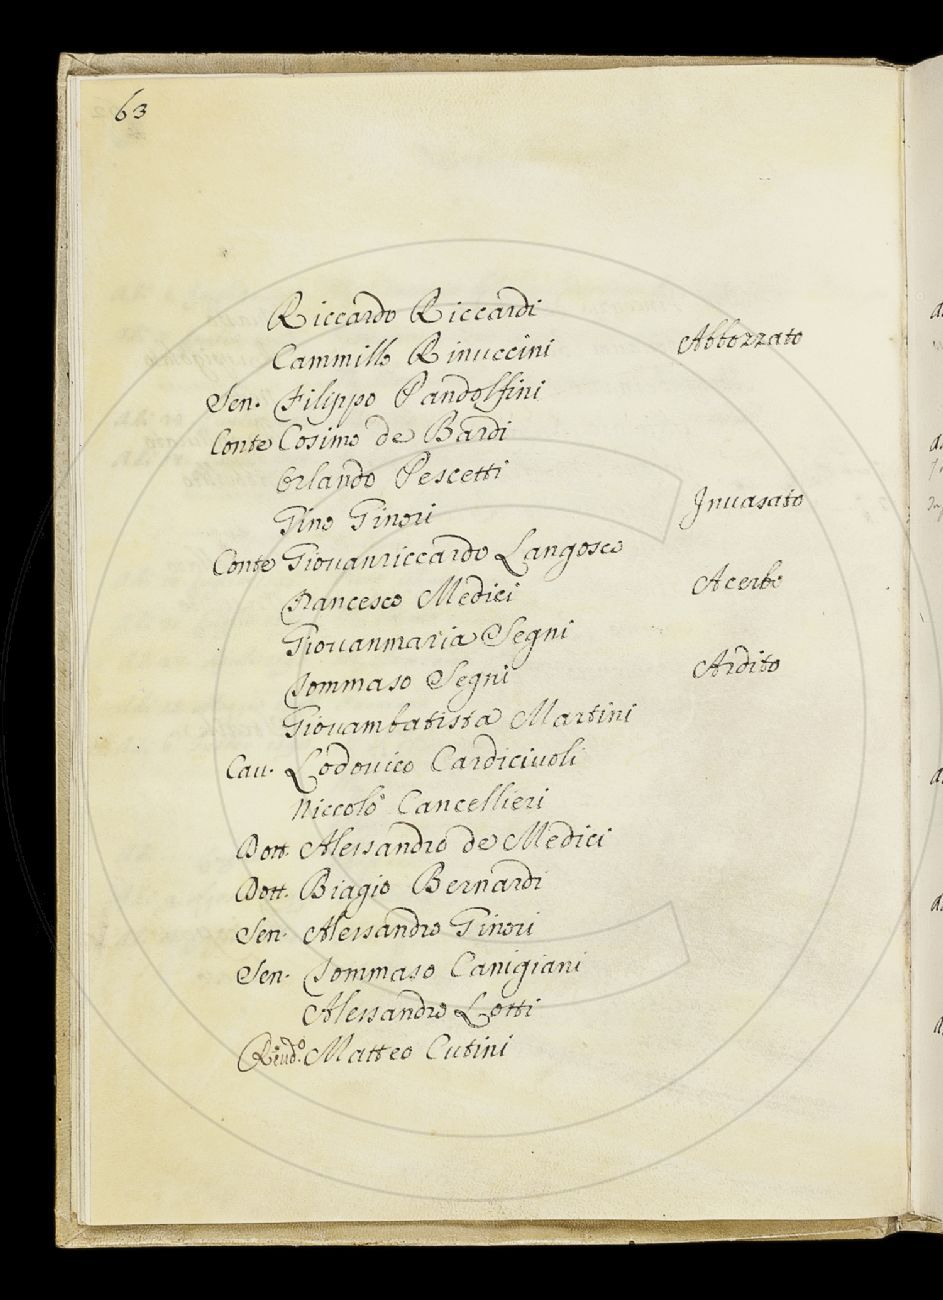 63
Riccardo Riccardi
Cammillo Rinuccini Abbozzato
Sen. Filippo Pandolfini
Conte Cosimo de Bardi
Orlando Pescetti
Gino Ginori Inuasato
Conte Giouanriccardo Langosco
Francesco Medici Acerbo
Giouanmaria Segni
Tommaso Segni Ardito
Giouambatista Martini
Cau. Lodouico Cardiciuoli
Niccolò Cancellieri
Dott. Alessandro de Medici
Dott. Biagio Bernardi
Sen. Alessandro Ginori
Sen. Tommaso Canigiani
Alessandro Lotti
Reud.o Matteo Cutini